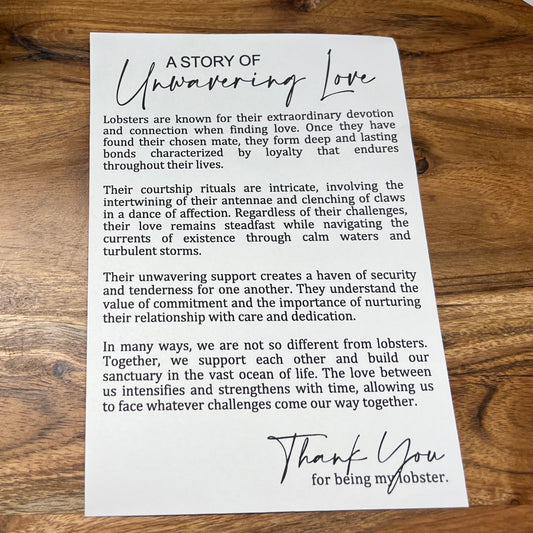 A STORY OF
Unwavering Love
Lobsters are known for their extraordinary devotion
and connection when finding love. Once they have
found their chosen mate, they form deep and lasting
bonds characterized by loyalty that endures
throughout their lives.
Their courtship rituals are intricate, involving the
intertwining of their antennae and clenching of claws
in a dance of affection. Regardless of their challenges,
their love remains steadfast while navigating the
currents of existence through calm waters and
turbulent storms.
Their unwavering support creates a haven of security
and tenderness for one another. They understand the
value of commitment and the importance of nurturing
their relationship with care and dedication.
In many ways, we are not so different from lobsters.
Together, we support each other and build our
sanctuary in the vast ocean of life. The love between
us intensifies and strengthens with time, allowing us
to face whatever challenges come our way together.
Thank You
for being my lobster.